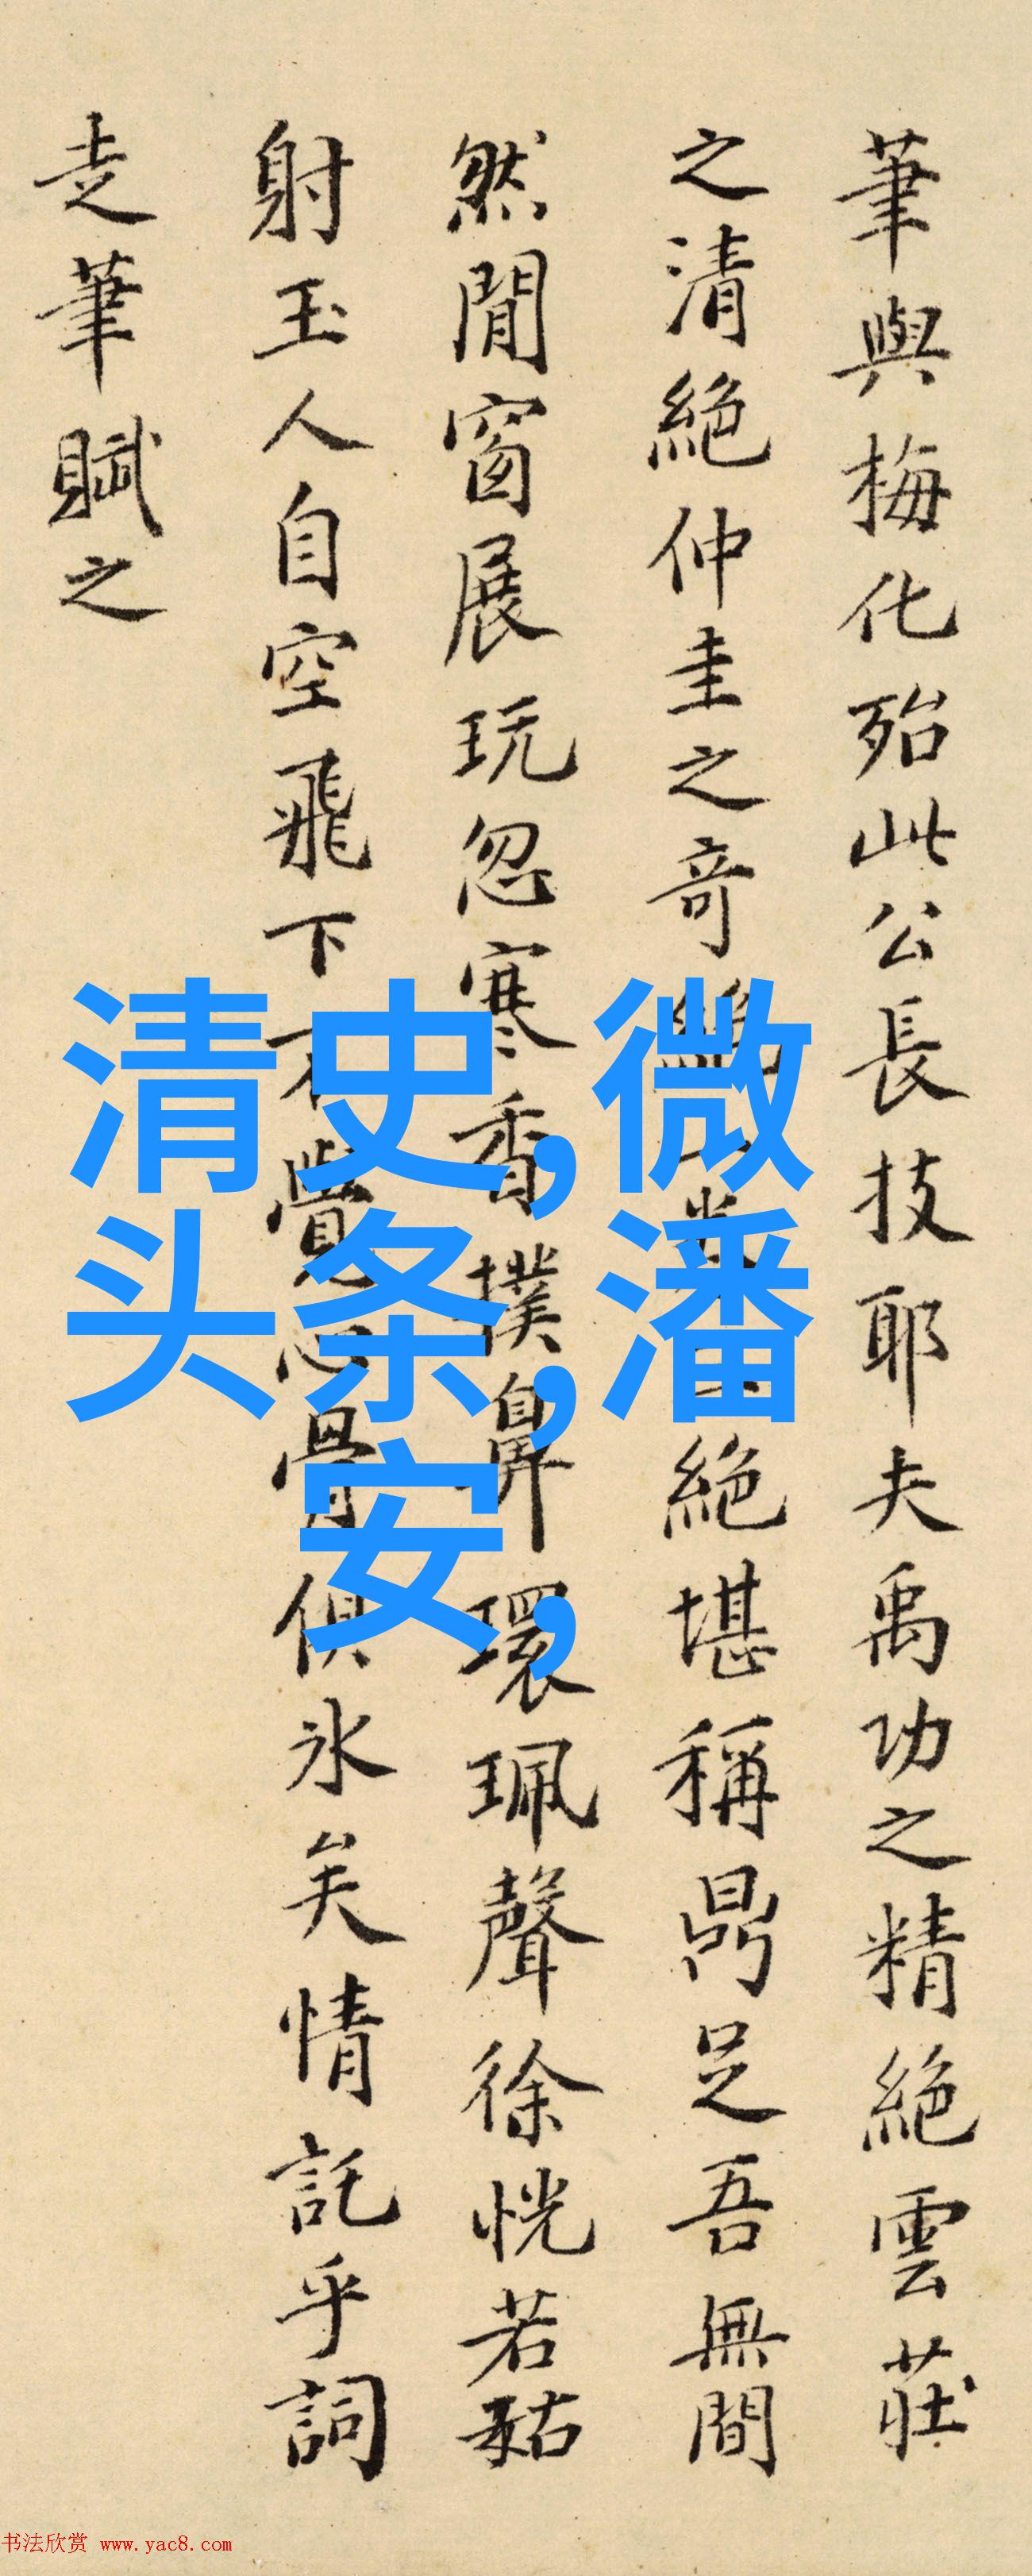 筆與梅化殆此公長技耶夫禹功之精絕雲莊
之清絕仲圭之奇絕絕堪稱鼎足吾無間
然閒窗展玩忽寒香撲鼻環珮聲徐恍若𮂹
射玉人自空飛下不覺心骨俱冰矣情託乎詞
走筆賦之
清史,微
头条,潘
安,
书法欣赏 www.yac8.com